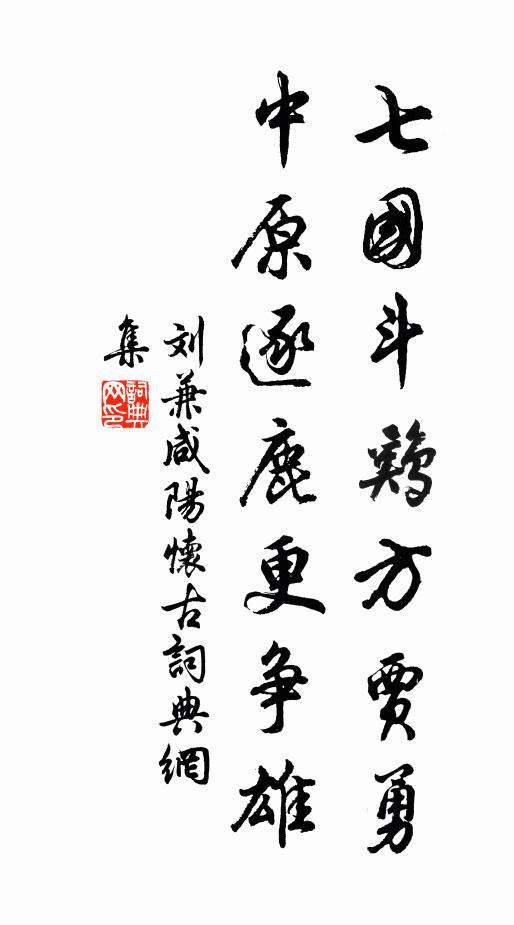 七國斗鷄方賈勇
中原逐鹿更争雄
刘兼咸陽懷古詞典網
集
詞典
网印